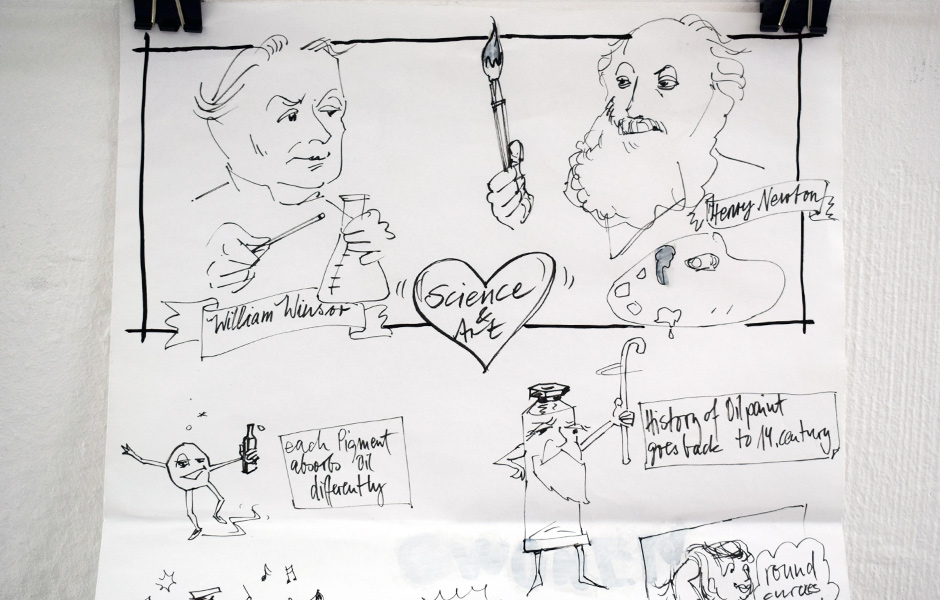 Henry Newton
William Winsor
Science
&
Art
each Pigment
absorbs Oil
differently
History of Oil paint
goes back to 14. century
round
curves